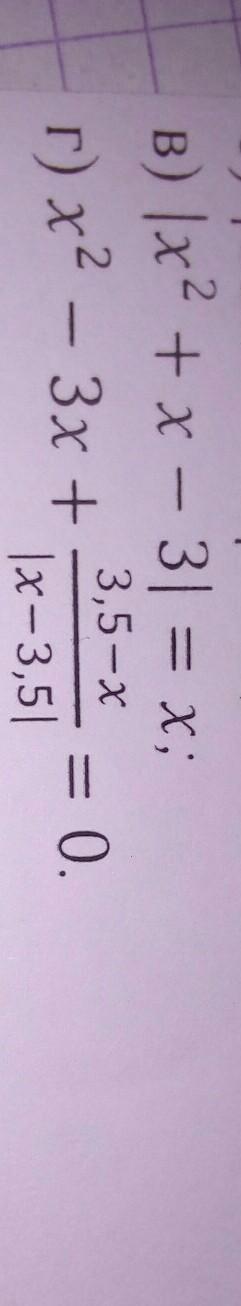 в) |x² + x − 3| = x;
г) x² − 3x + \frac{3,5−x}{|x−3,5|} = 0.